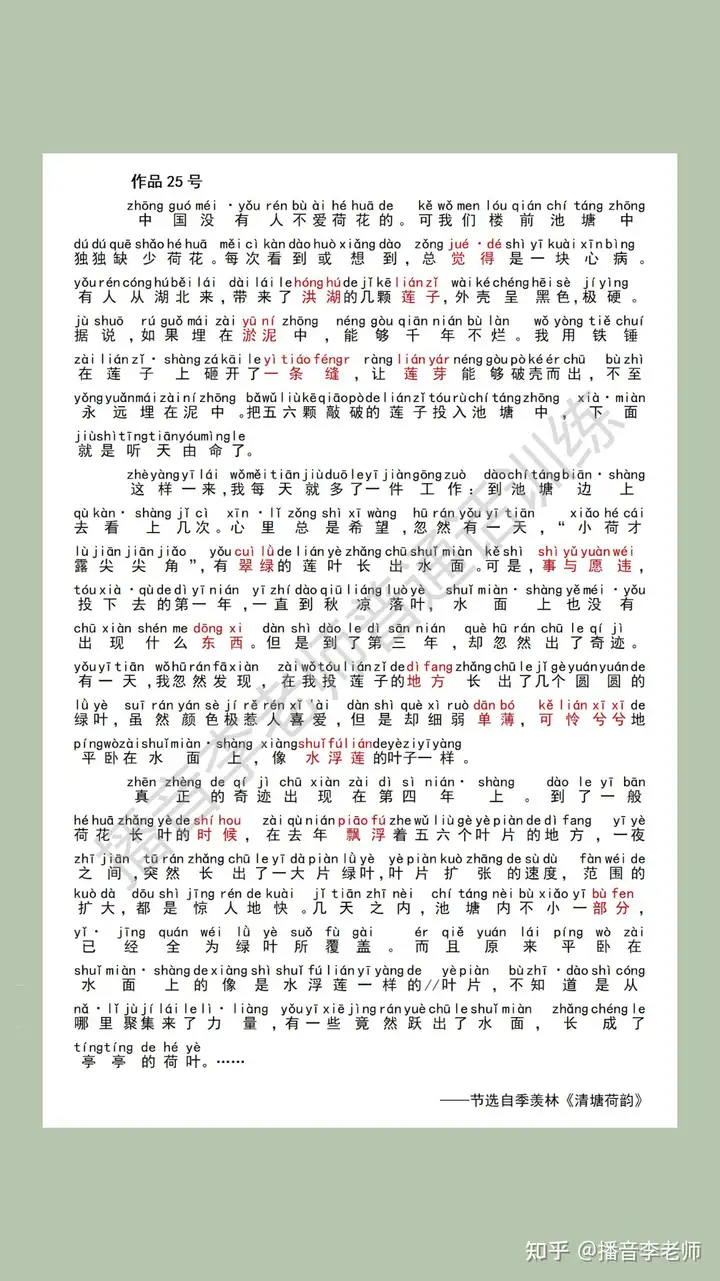 作品25号
zhōng guó méi · yǒu rén bù ài hé huā de kě wǒ men lóu qián chí táng zhōng
中国没有人不爱荷花的。可我们楼前池塘中
dú dú quē shǎo hé huā měi cì kàn dào huò xiǎng dào zǒng jué · dé shì yī kuài xīn bìng
独独缺少荷花。每次看到或想到,总觉得是一块心病。
yǒu rén cóng hú běi lái dài lái le hóng hú de jǐ kē lián zǐ wài ké chéng hēi sè jí yìng
有人从湖北来,带来了洪湖的几颗莲子,外壳呈黑色,极硬。
jù shuō rú guǒ mái zài yū ní zhōng néng gòu qiān nián bù làn wǒ yòng tiě chuí
据说,如果埋在淤泥中,能够千年不烂。我用铁锤
zài lián zǐ · shàng zá kāi le yì tiáo féngr ràng lián yár néng gòu pò ké ér chū bù zhì
在莲子上砸开了一条缝,让莲芽能够破壳而出,不至
yǒng yuǎn mái zài ní zhōng bǎ wǔ liù kē qiāo pò de lián zǐ tóu rù chí táng zhōng xià · miàn
永远埋在泥中。把五六颗敲破的莲子投入池塘中,下面
jiù shì tīng tiān yóu mìng le
就是听天由命了。
zhè yàng yī lái wǒ měi tiān jiù duō le yī jiàn gōng zuò dào chí táng biān · shàng
这样一来,我每天就多了一件工作:到池塘边上
qù kàn · shàng jǐ cì xīn · lǐ zǒng shì xī wàng hū rán yǒu yī tiān xiǎo hé cái
去看上几次。心里总是希望,忽然有一天,“小荷才
lù jiān jiān jiǎo yǒu cuì lǜ de lián yè zhǎng chū shuǐ miàn kě shì shì yǔ yuàn wéi
露尖尖角”,有翠绿的莲叶长出水面。可是,事与愿违,
tóu xià · qù de dì yī nián yī zhí dào qiū liáng luò yè shuǐ miàn · shàng yě méi · yǒu
投下去的第一年,一直到秋凉落叶,水面上也没有
chū xiàn shén me dōng xi dàn shì dào le dì sān nián què hū rán chū le qí jì
出现什么东西。但是到了第三年,却忽然出了奇迹。
yǒu yī tiān wǒ hū rán fā xiàn zài wǒ tóu lián zǐ de dì fang zhǎng chū le jǐ gè yuán yuán de
有一天,我忽然发现,在我投莲子的地方长出了几个圆圆的
lǜ yè suī rán yán sè jí rě rén xǐ 'ài dàn shì què xì ruò dān bó kě lián xī xī de
绿叶,虽然颜色极惹人喜爱,但是却细弱单薄,可怜兮兮地
píng wò zài shuǐ miàn · shàng xiàng shuǐ fú lián de yè zi yī yàng
平卧在水面上,像水浮莲的叶子一样。
zhēn zhèng de qí jì chū xiàn zài dì sì nián · shàng dào le yī bān
真正的奇迹出现在第四年上。到了一般
hé huā zhǎng yè de shí hou zài qù nián piāo fú zhe wǔ liù gè yè piàn de dì fang yī yè
荷花长叶的时候,在去年飘浮着五六个叶片的地方,一夜
zhī jiān tū rán zhǎng chū le yī dà piàn lǜ yè yè piàn kuò zhāng de sù dù fàn wéi de
之间,突然长出了一大片绿叶,叶片扩张的速度,范围的
kuò dà dōu shì jīng rén de kuài jǐ tiān zhī nèi chí táng nèi bù xiǎo yī bù fen
扩大,都是惊人地快。几天之内,池塘内不小一部分,
yǐ · jīng quán wéi lǜ yè suǒ fù gài ér qiě yuán lái píng wò zài
已经全为绿叶所覆盖。而且原来平卧在
shuǐ miàn · shàng de xiàng shì shuǐ fú lián yī yàng de yè piàn bù zhī · dào shì cóng
水面上的像是水浮莲一样的//叶片,不知道是从
nǎ · lǐ jù jí lái le lì · liàng yǒu yī xiē jìng rán yuè chū le shuǐ miàn zhǎng chéng le
哪里聚集来了力量,有一些竟然跃出了水面,长成了
tíng tíng de hé yè
亭亭的荷叶。……
——节选自季羡林《清塘荷韵》
播音李老师普通话训练
知乎 @播音李老师